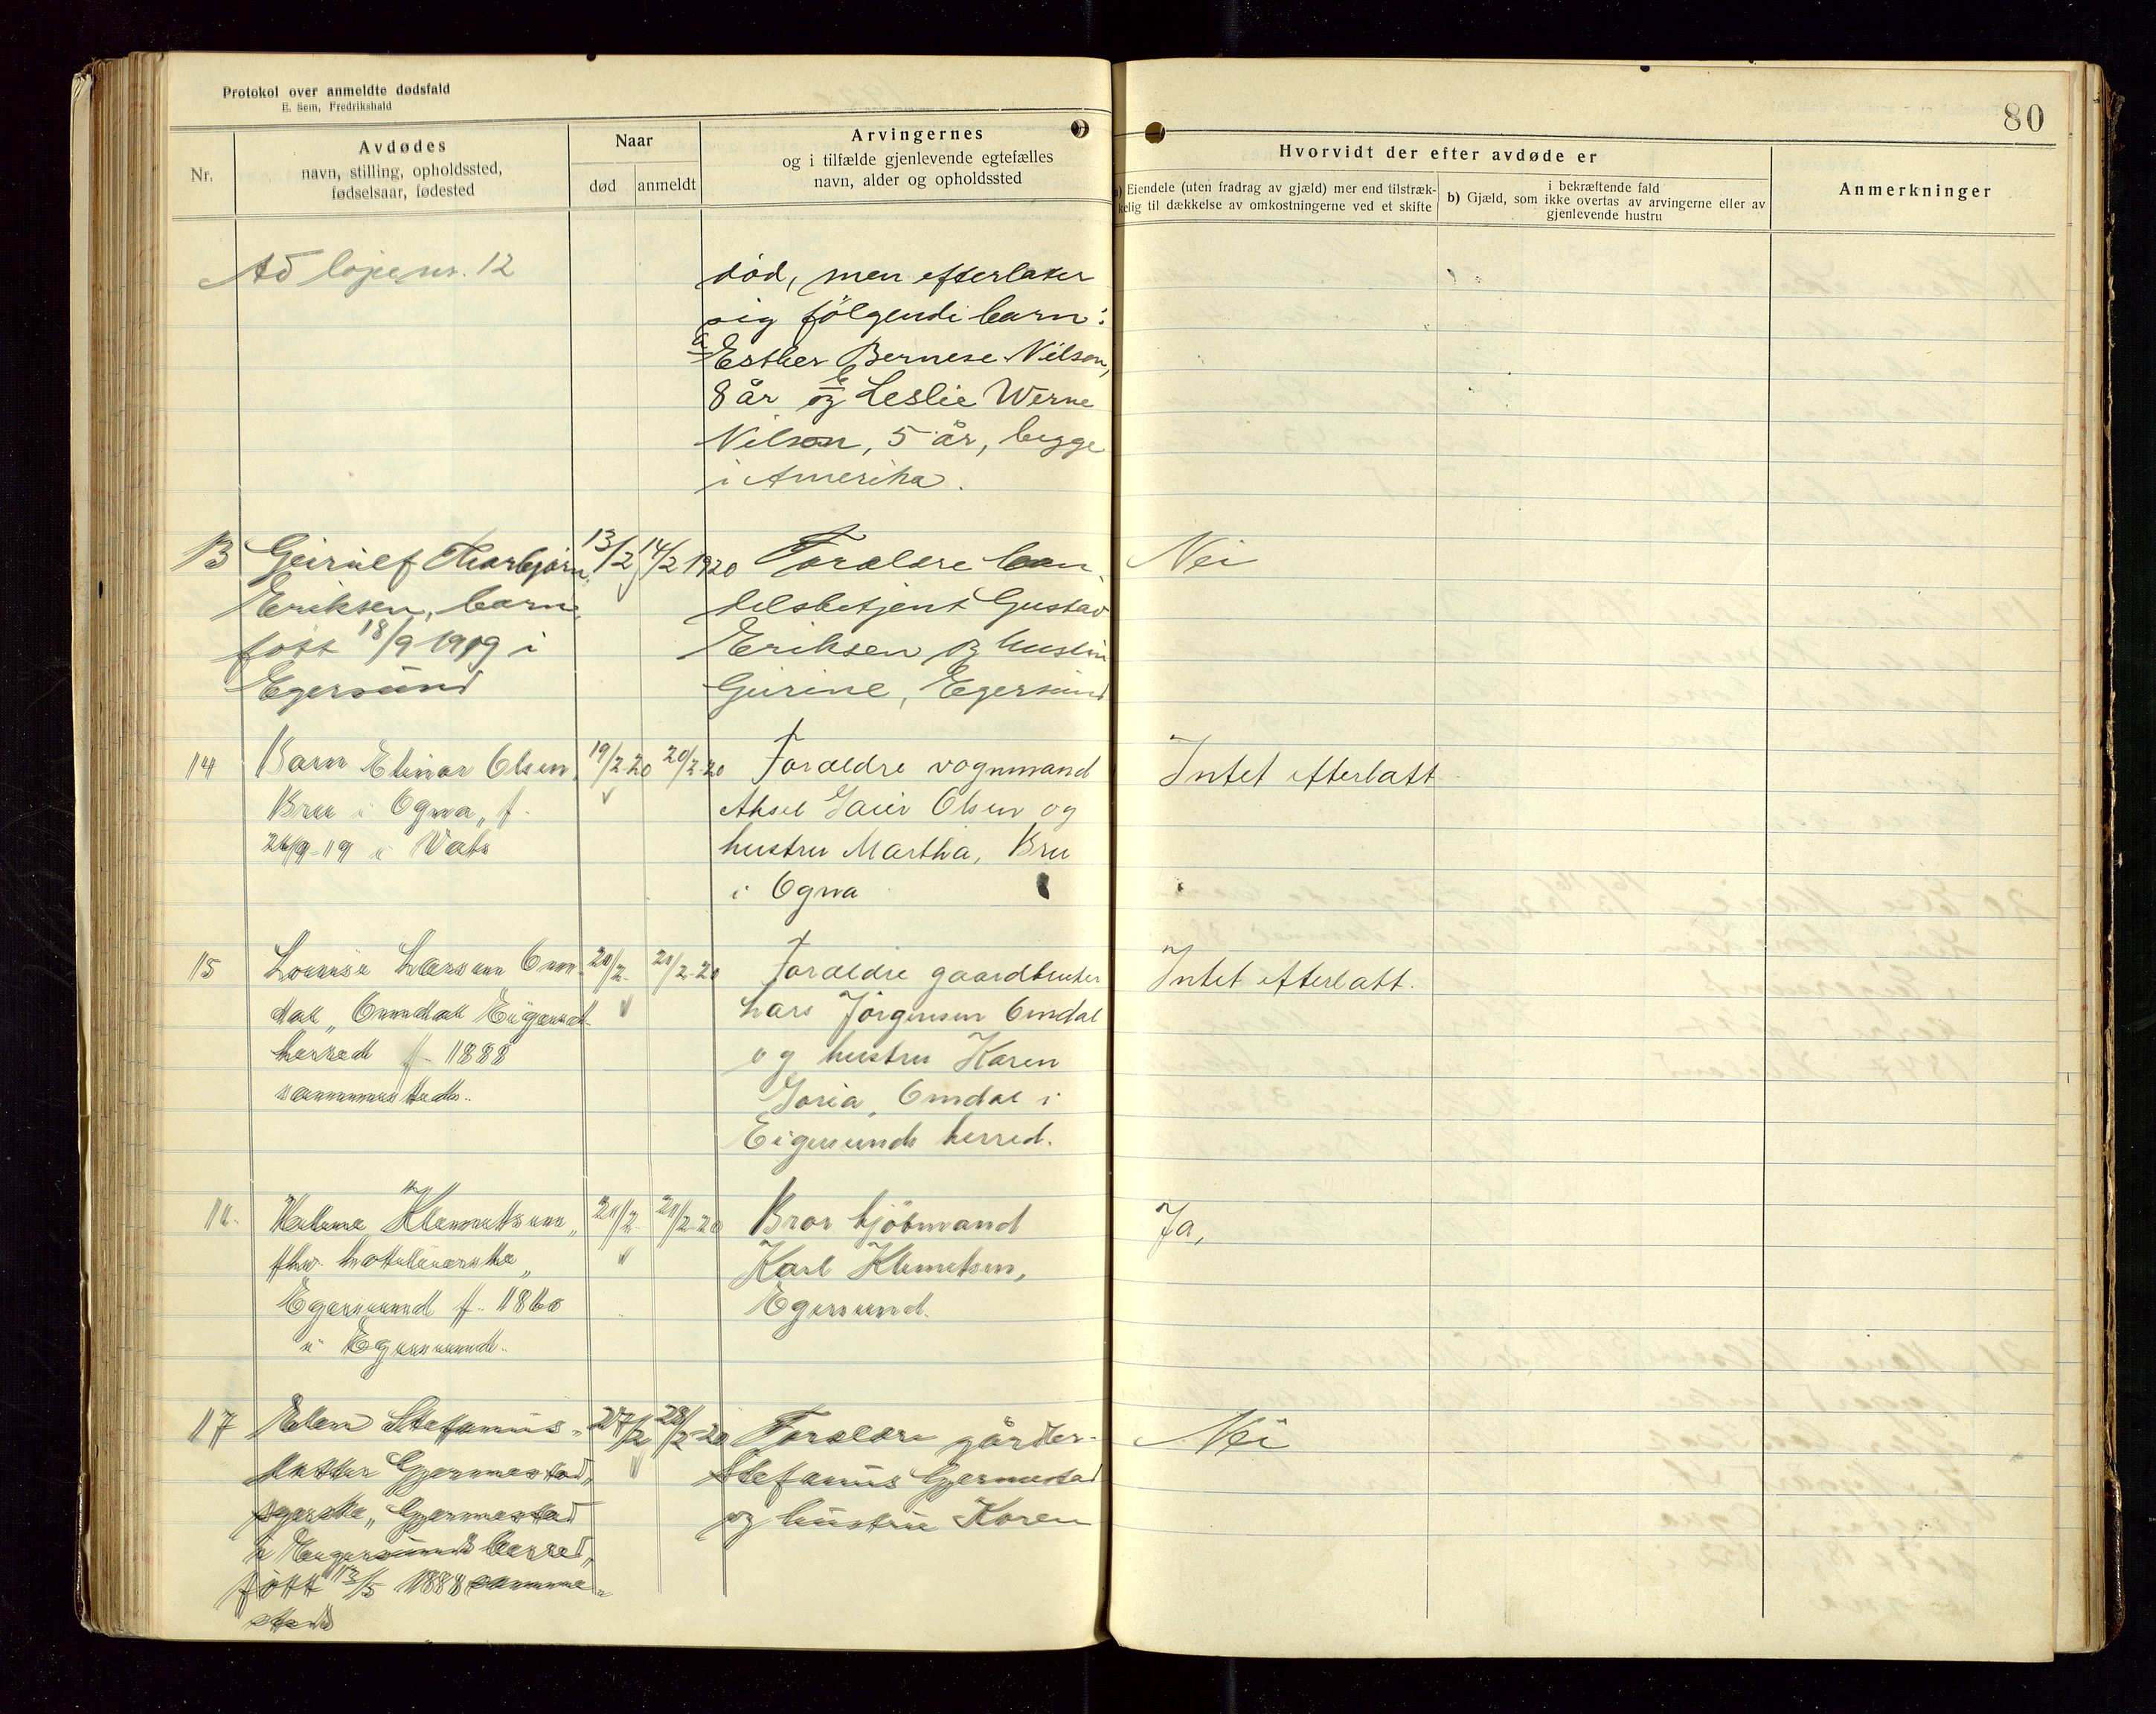 Protokol over anmeldte dødsfald
E. Sem, Fredrikshald
80
Nr.
Avdødes
navn, stilling, opholdssted,
fødselsaar, fødested
Naar
død
anmeldt
Arvingernes
og i tilfælde gjenlevende egtefælles
navn, alder og opholdssted
Hvorvidt der efter avdøde er
a) Eiendele (uten fradrag av gjæld) mer end tilstræk-
kelig til dækkelse av omkostningerne ved et skifte
i bekræftende fald
b) Gjæld, som ikke overtas av arvingerne eller av
gjenlevende hustru
Anmerkninger
Ad løpenr. 12
død, men efterlater
sig følgende barn:
a Esther Bernese Nilson,
8 år og b Leslie Werne
Nilson, 5 år, begge
i Amerika.
13 Geirulf Thorbjørn 13/2 14/2 1920 Foreldre han- Nei
Eriksen, barn, delsbetjent Gustav
født 18/9 1919 i Eriksen og hustru
Egersund Geirine, Egersund
14 Barn Elinar Olsen, 19/2-20 20/2-20 Foreldre vognmand Intet efterlatt
Bru i Ogna, f. Aksel Olsen og
26/9-19 i Vats hustru Martha, Bru
i Ogna
15 Lovise Larsen Om- 20/2- 21/2-20 Foreldre gaardbruker Intet efterlatt.
dal, Omdal Eigersund Lars Jörgensen Omdal
herred f. 1888 og hustru Karen
sammesteds. Joria, Omdal i
Eigersunds herred.
16. Klemetsen, 21/2- 21/2-20 Bror kjöbmand Ja,
fhv. hotelværtske, Karl Klemetsen,
Egersund f. 1860 Egersund.
i Egersund.
17 Elen Stefanus- 27/2 28/2-20 Foreldre gårdbr. Nei
datter Gjermestad, Stefanus Gjermestad
Gjermestad og hustru Karen
i Eigersunds herred,
født 13/5 1888 samme-
steds